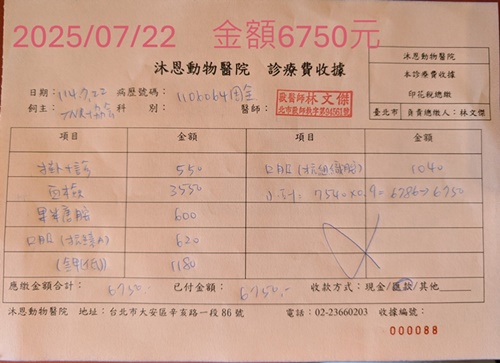 2025/07/22 金額6750元
沐恩動物醫院 診療費收據
沐恩動物醫院
本診療費收據
印花稅總繳
臺北市 負責總繳人：林文傑
日期：114.7.22 病歷號碼：1106064
飼主： 科別： 醫師： 獸醫師林文傑
項目 金額 項目 金額
掛+診 550 口服 1040
3550 小計：7540×0.9=6786→6750
600
口服 620
1180
應繳金額合計：6750.- 已付金額：6750.- 收款方式：現金/匯款/其他
沐恩動物醫院 地址：台北市大安區辛亥路一段86號 電話：02-23660203 收據編號：
000088